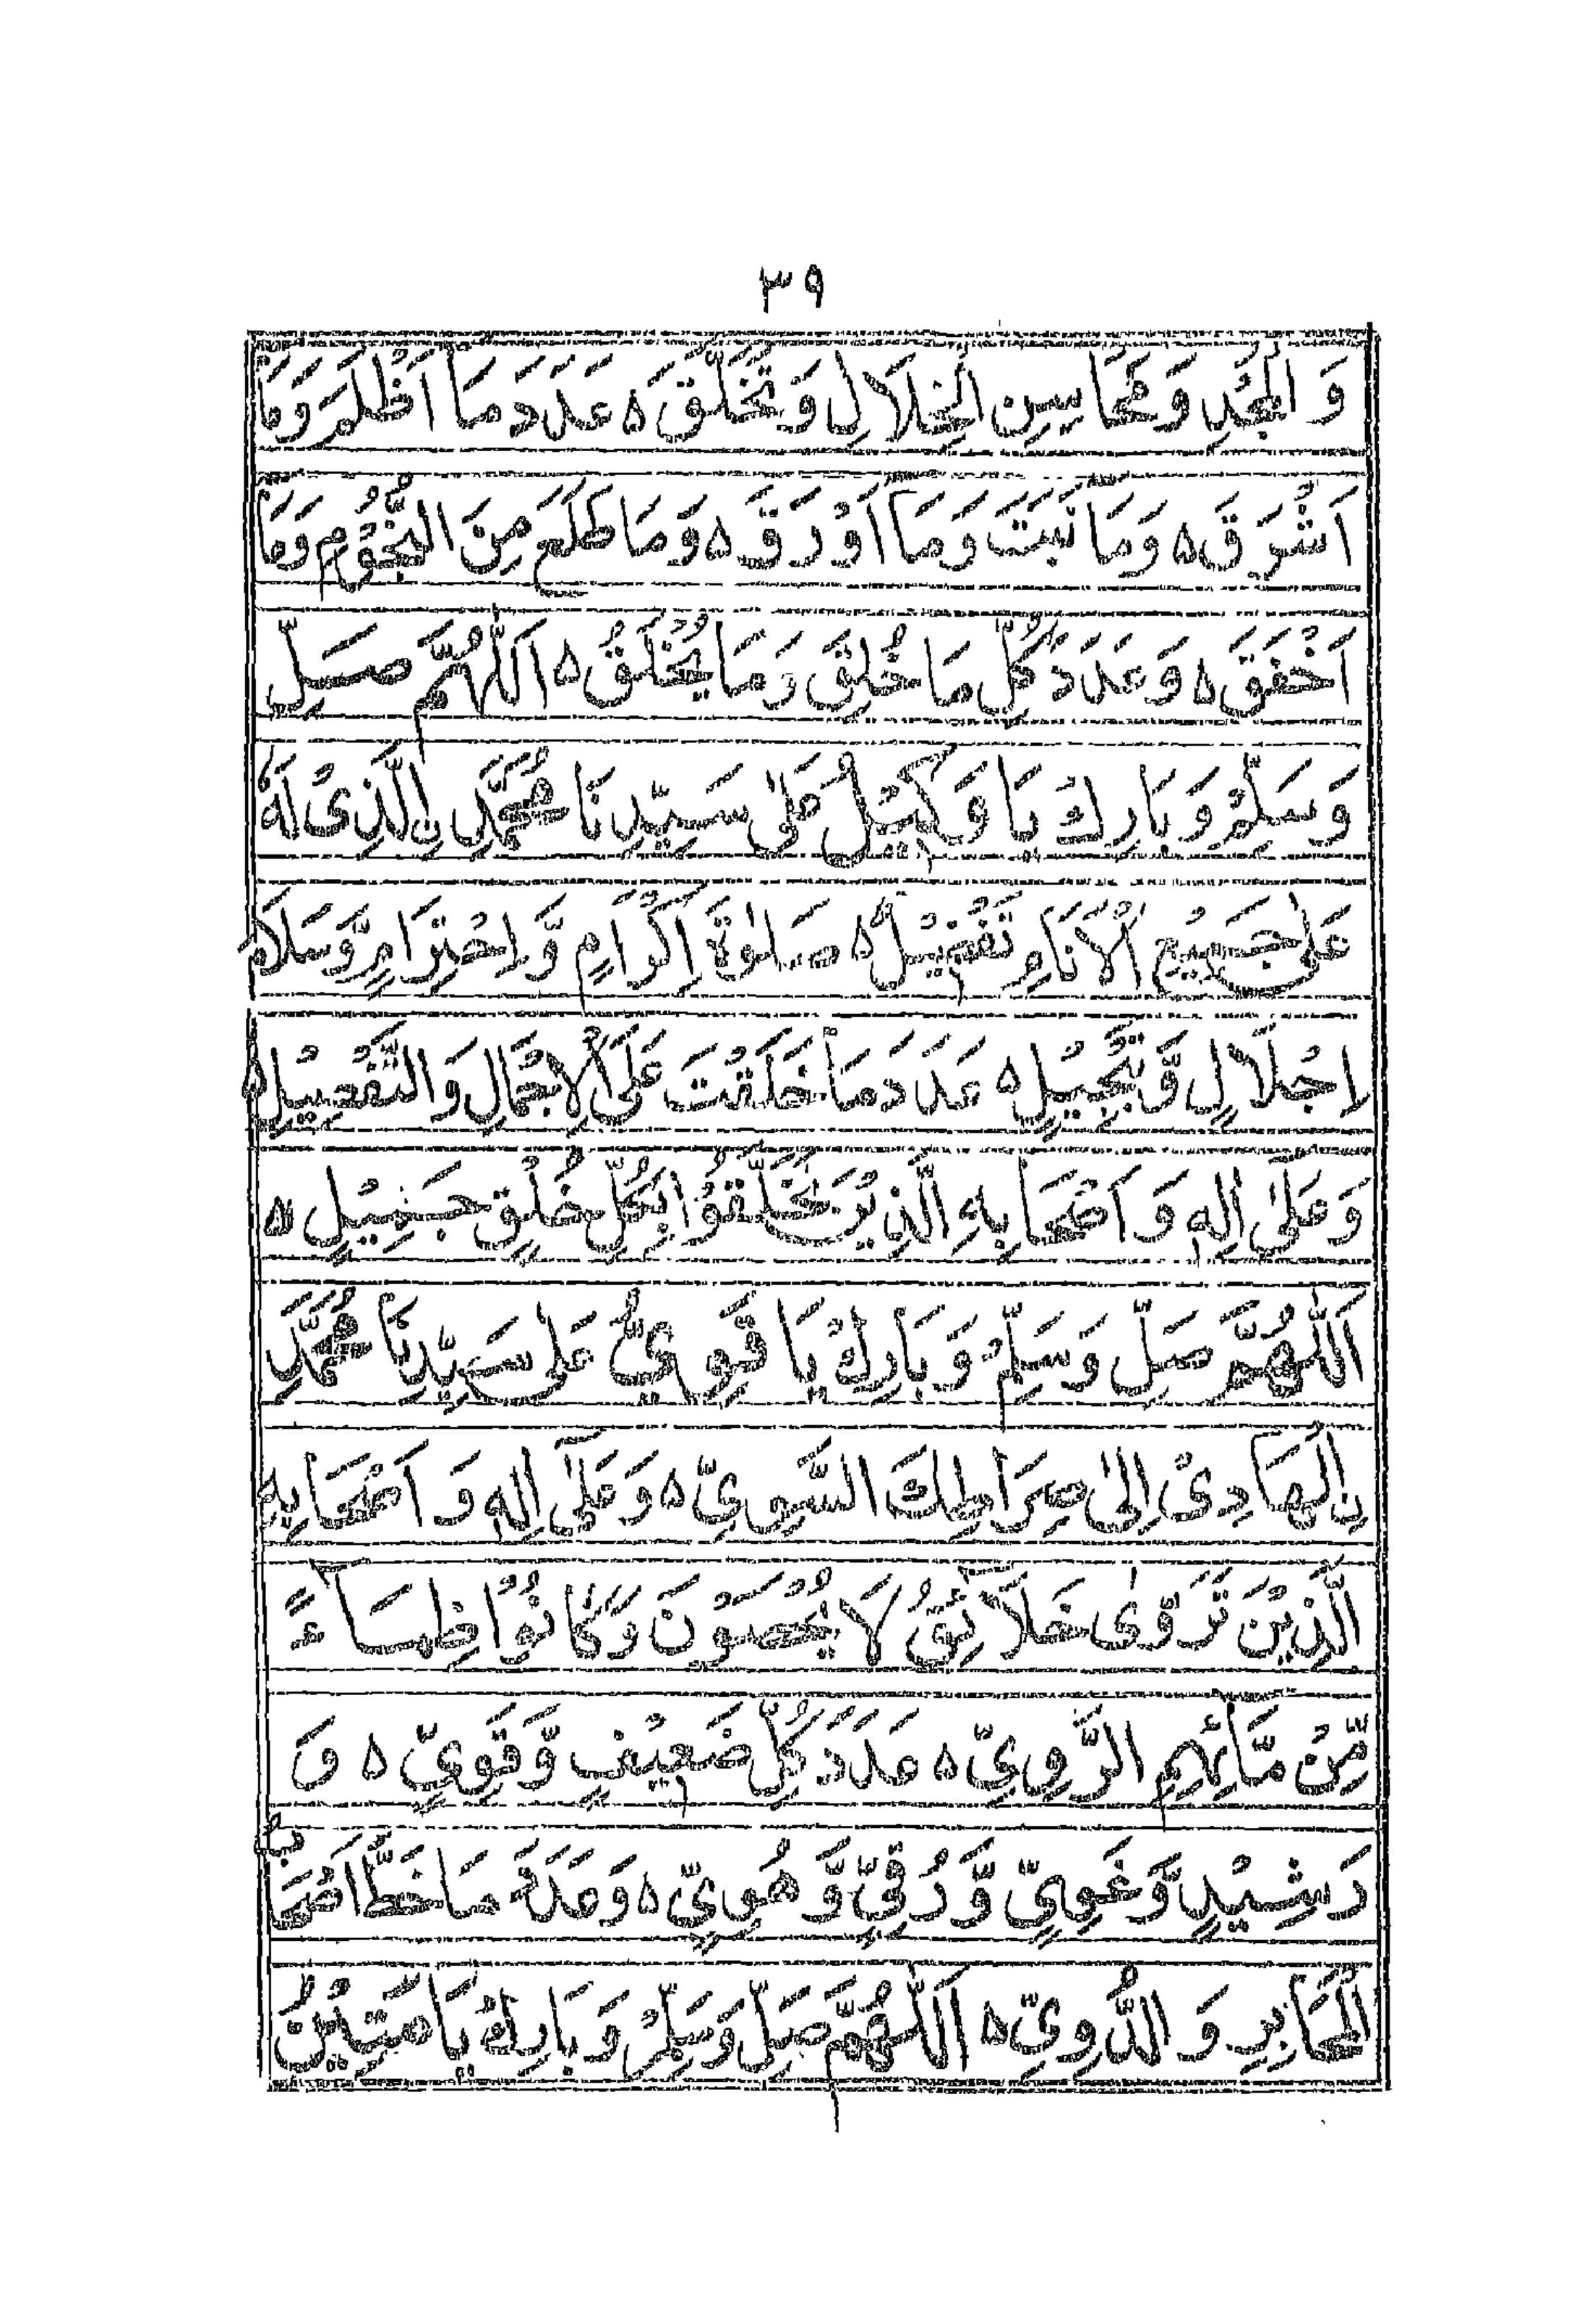 ٣٩
وَ الْمَجْدِ وَمَحَاسِنِ الْخِلَالِ وَتَخَلَّقَ ۵ عَدَدَ مَا اَظْلَمَ وَمَا
اَشْرَقَ ۵ وَمَا نَبَتَ وَمَا اَوْرَقَ ۵ وَمَا طَلَعَ مِنَ النُّجُوْمِ وَمَا
اَخْفَقَ ۵ وَعَدَدَ كُلِّ مَا خُلِقَ وَمَا يُخْلَقُ ۵ اَللّٰهُمَّ صَلِّ
وَسَلِّمْ وَ بَارِكْ يَا وَكِيْلُ عَلٰى سَيِّدِنَا مُحَمَّدِ نِ الَّذِىْ لَهٗ
عَلٰى جَمِيْعِ الْاَنَامِ تَفْضِيْلٌ ۵ صَلٰوةَ اِكْرَامٍ وَّ اِحْتِرَامٍ وَّسَلَامَ
اِجْلَالٍ وَّ تَبْجِيْلٍ ۵ عَدَدَ مَا خَلَقْتَ عَلَى الْاِجْمَالِ وَالتَّفْصِيْلِ ۵
وَعَلٰى اٰلِهٖ وَ اَصْحَابِهِ الَّذِيْنَ تَخَلَّقُوْا بِكُلِّ خُلُقٍ جَمِيْلٍ ۵
اَللّٰهُمَّ صَلِّ وَسَلِّمْ وَ بَارِكْ يَا قَوِىُّ عَلٰى سَيِّدِنَا مُحَمَّدِ
نِ الْهَادِىْ اِلٰى صِرَاطِكَ السَّوِىِّ ۵ وَعَلٰى اٰلِهٖ وَ اَصْحَابِهِ
الَّذِيْنَ تَرَوّٰى خَلَآئِقُ لَا يُحْصَوْنَ وَكَانُوْا ظِمَآءً
مِّنْ مَّآئِهِمِ الرَّوِىِّ ۵ عَدَدَ كُلِّ ضَعِيْفٍ وَّ قَوِىٍّ ۵ وَ
رَشِيْدٍ وَّ غَوِىٍّ وَّ رُقِىٍّ وَّ هُوِىٍّ ۵ وَعَدَدَ مَا خَطَّ اَصْحَابُ
الْمَحَابِرِ وَ الدُّوِىِّ ۵ اَللّٰهُمَّ صَلِّ وَسَلِّمْ وَ بَارِكْ يَا مَتِيْنُ